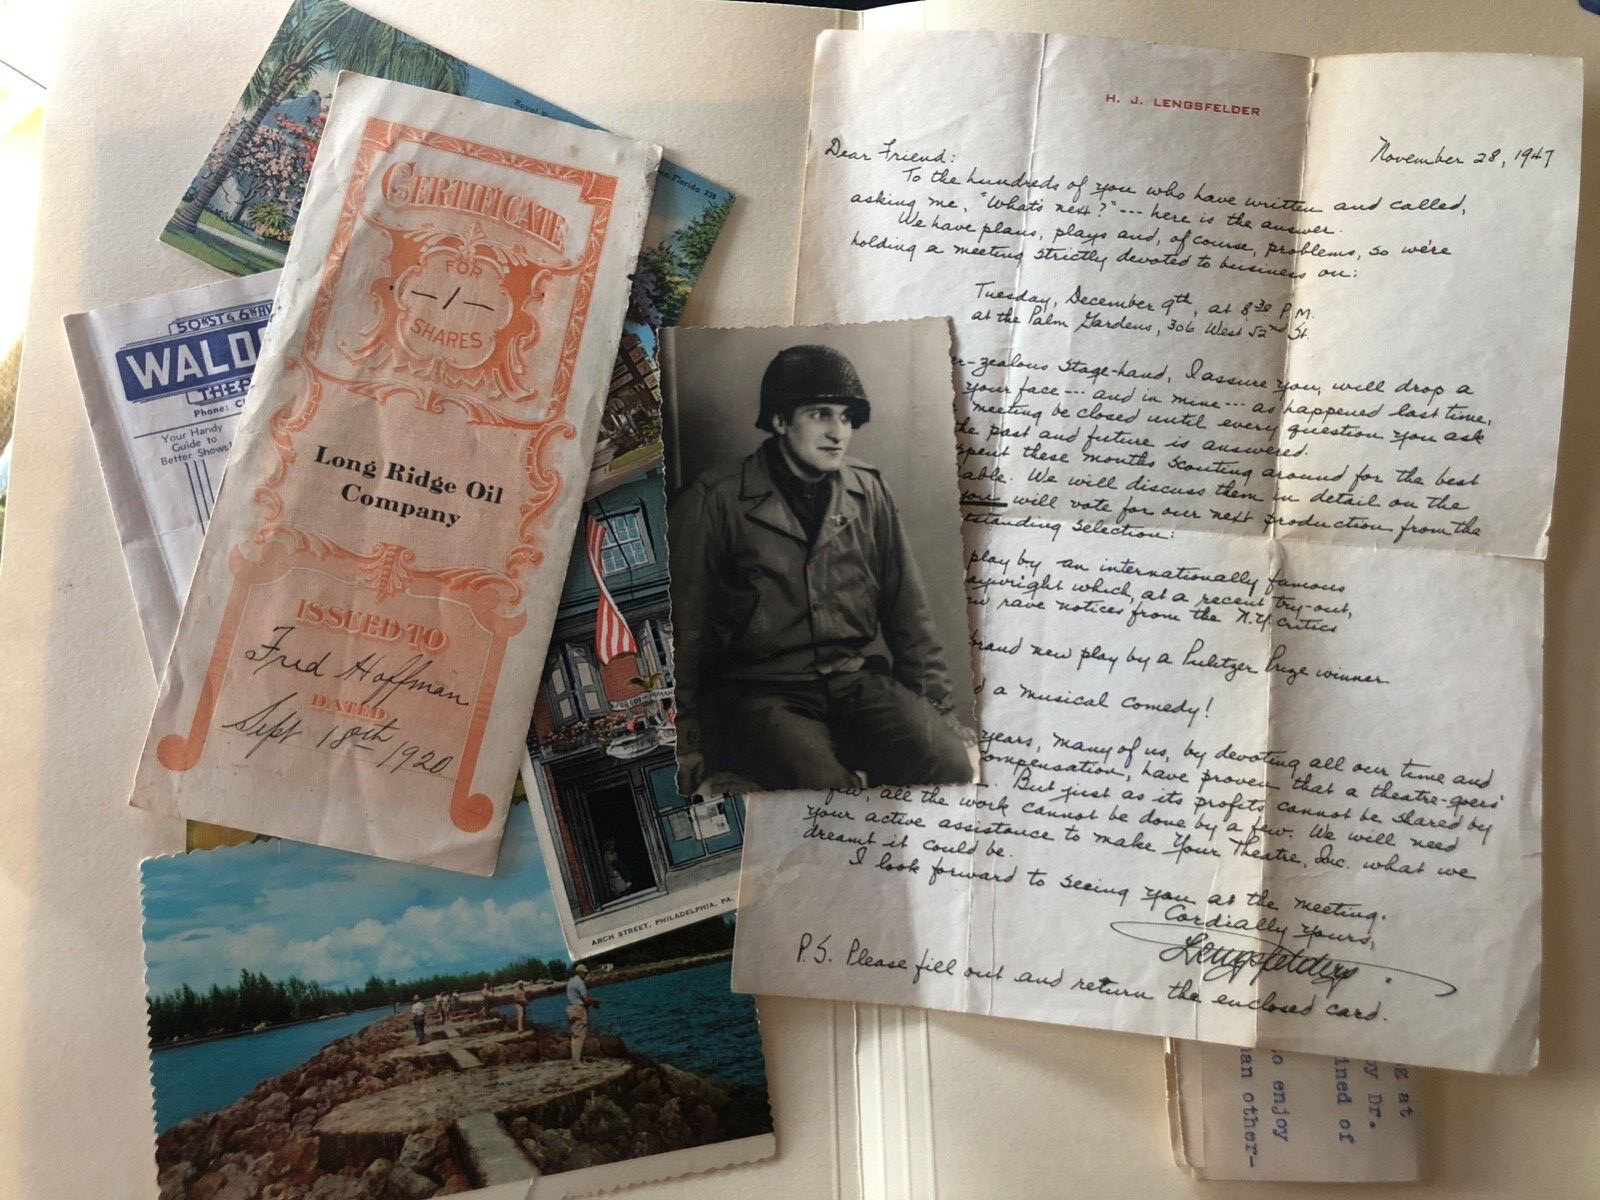 Royal
Florida 228
CERTIFICATE
FOR
—1—
SHARES
Long Ridge Oil
Company
ISSUED TO
Fred Hoffman
DATED
Sept 18th 1920
50th ST & 6th AV
WALD
THE
Phone: C
Your Handy
Guide to
Better Shows!
ARCH STREET, PHILADELPHIA, PA.
H. J. LENGSFELDER
November 28, 1947
Dear Friend:
To the hundreds of you who have written and called,
asking me, "What's next?" --- here is the answer.
We have plans, plays and, of course, problems, so we're
holding a meeting strictly devoted to business on:
Tuesday, December 9th, at 8:30 P.M.
at the Palm Gardens, 306 West 52nd St.
er-zealous stage-hand, I assure you, will drop a
your face --- and in mine --- as happened last time,
meeting be closed until every question you ask
the past and future is answered.
spent these months scouting around for the best
able. We will discuss them in detail on the
you will vote for our next production from the
tstanding selection:
play by an internationally famous
aywright which, at a recent try-out,
ew rave notices from the N.Y. critics
brand new play by a Pulitzer Prize winner
d a musical comedy!
years, many of us, by devoting all our time and
compensation, have proven that a theatre-goers'
But just as its profits cannot be shared by
few, all the work cannot be done by a few. We will need
your active assistance to make Your Theatre, Inc. what we
dreamt it could be.
I look forward to seeing you at the meeting.
Cordially yours,
Lengsfelder
P.S. Please fill out and return the enclosed card.
g at
y Dr.
ined of
o enjoy
an other-